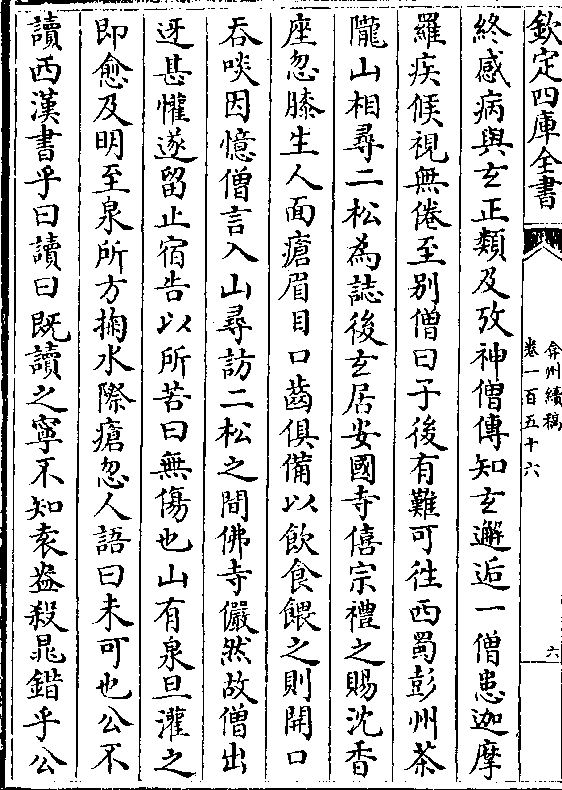 欽定四庫全書
弇州續稿
卷一百五十六
六
終感病與玄正類及攷神僧傳知玄邂逅一僧患迦摩
羅疾候視無倦至别僧曰子後有難可往西蜀彭州茶
隴山相尋二松為誌後玄居安國寺僖宗禮之賜沈香
座忽膝生人面瘡眉目口齒俱備以飲食餵之則開口
吞啖因憶僧言入山尋訪二松之間佛寺儼然故僧出
迓甚懽遂留止宿告以所苦曰無傷也山有泉旦灌之
即愈及明至泉所方掬水際瘡忽人語曰未可也公不
讀西漢書乎曰讀曰既讀之寧不知袁盎殺鼂錯乎公